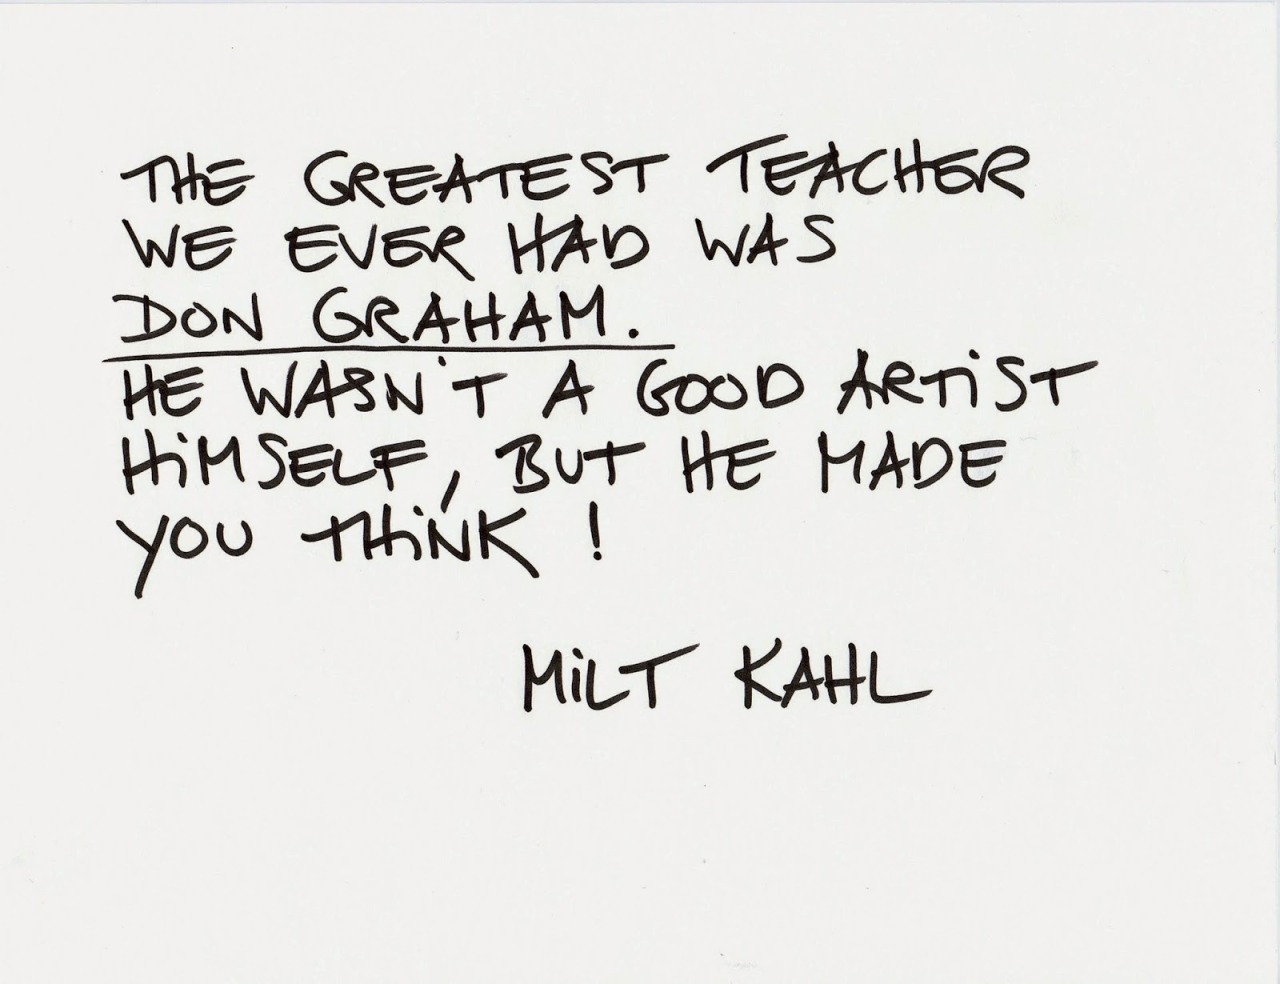 THE GREATEST TEACHER
WE EVER HAD WAS
DON GRAHAM.
HE WASN'T A GOOD ARTiST
HiMSELF, BUT HE MADE
YOU THiNK!
MiLT KAHL